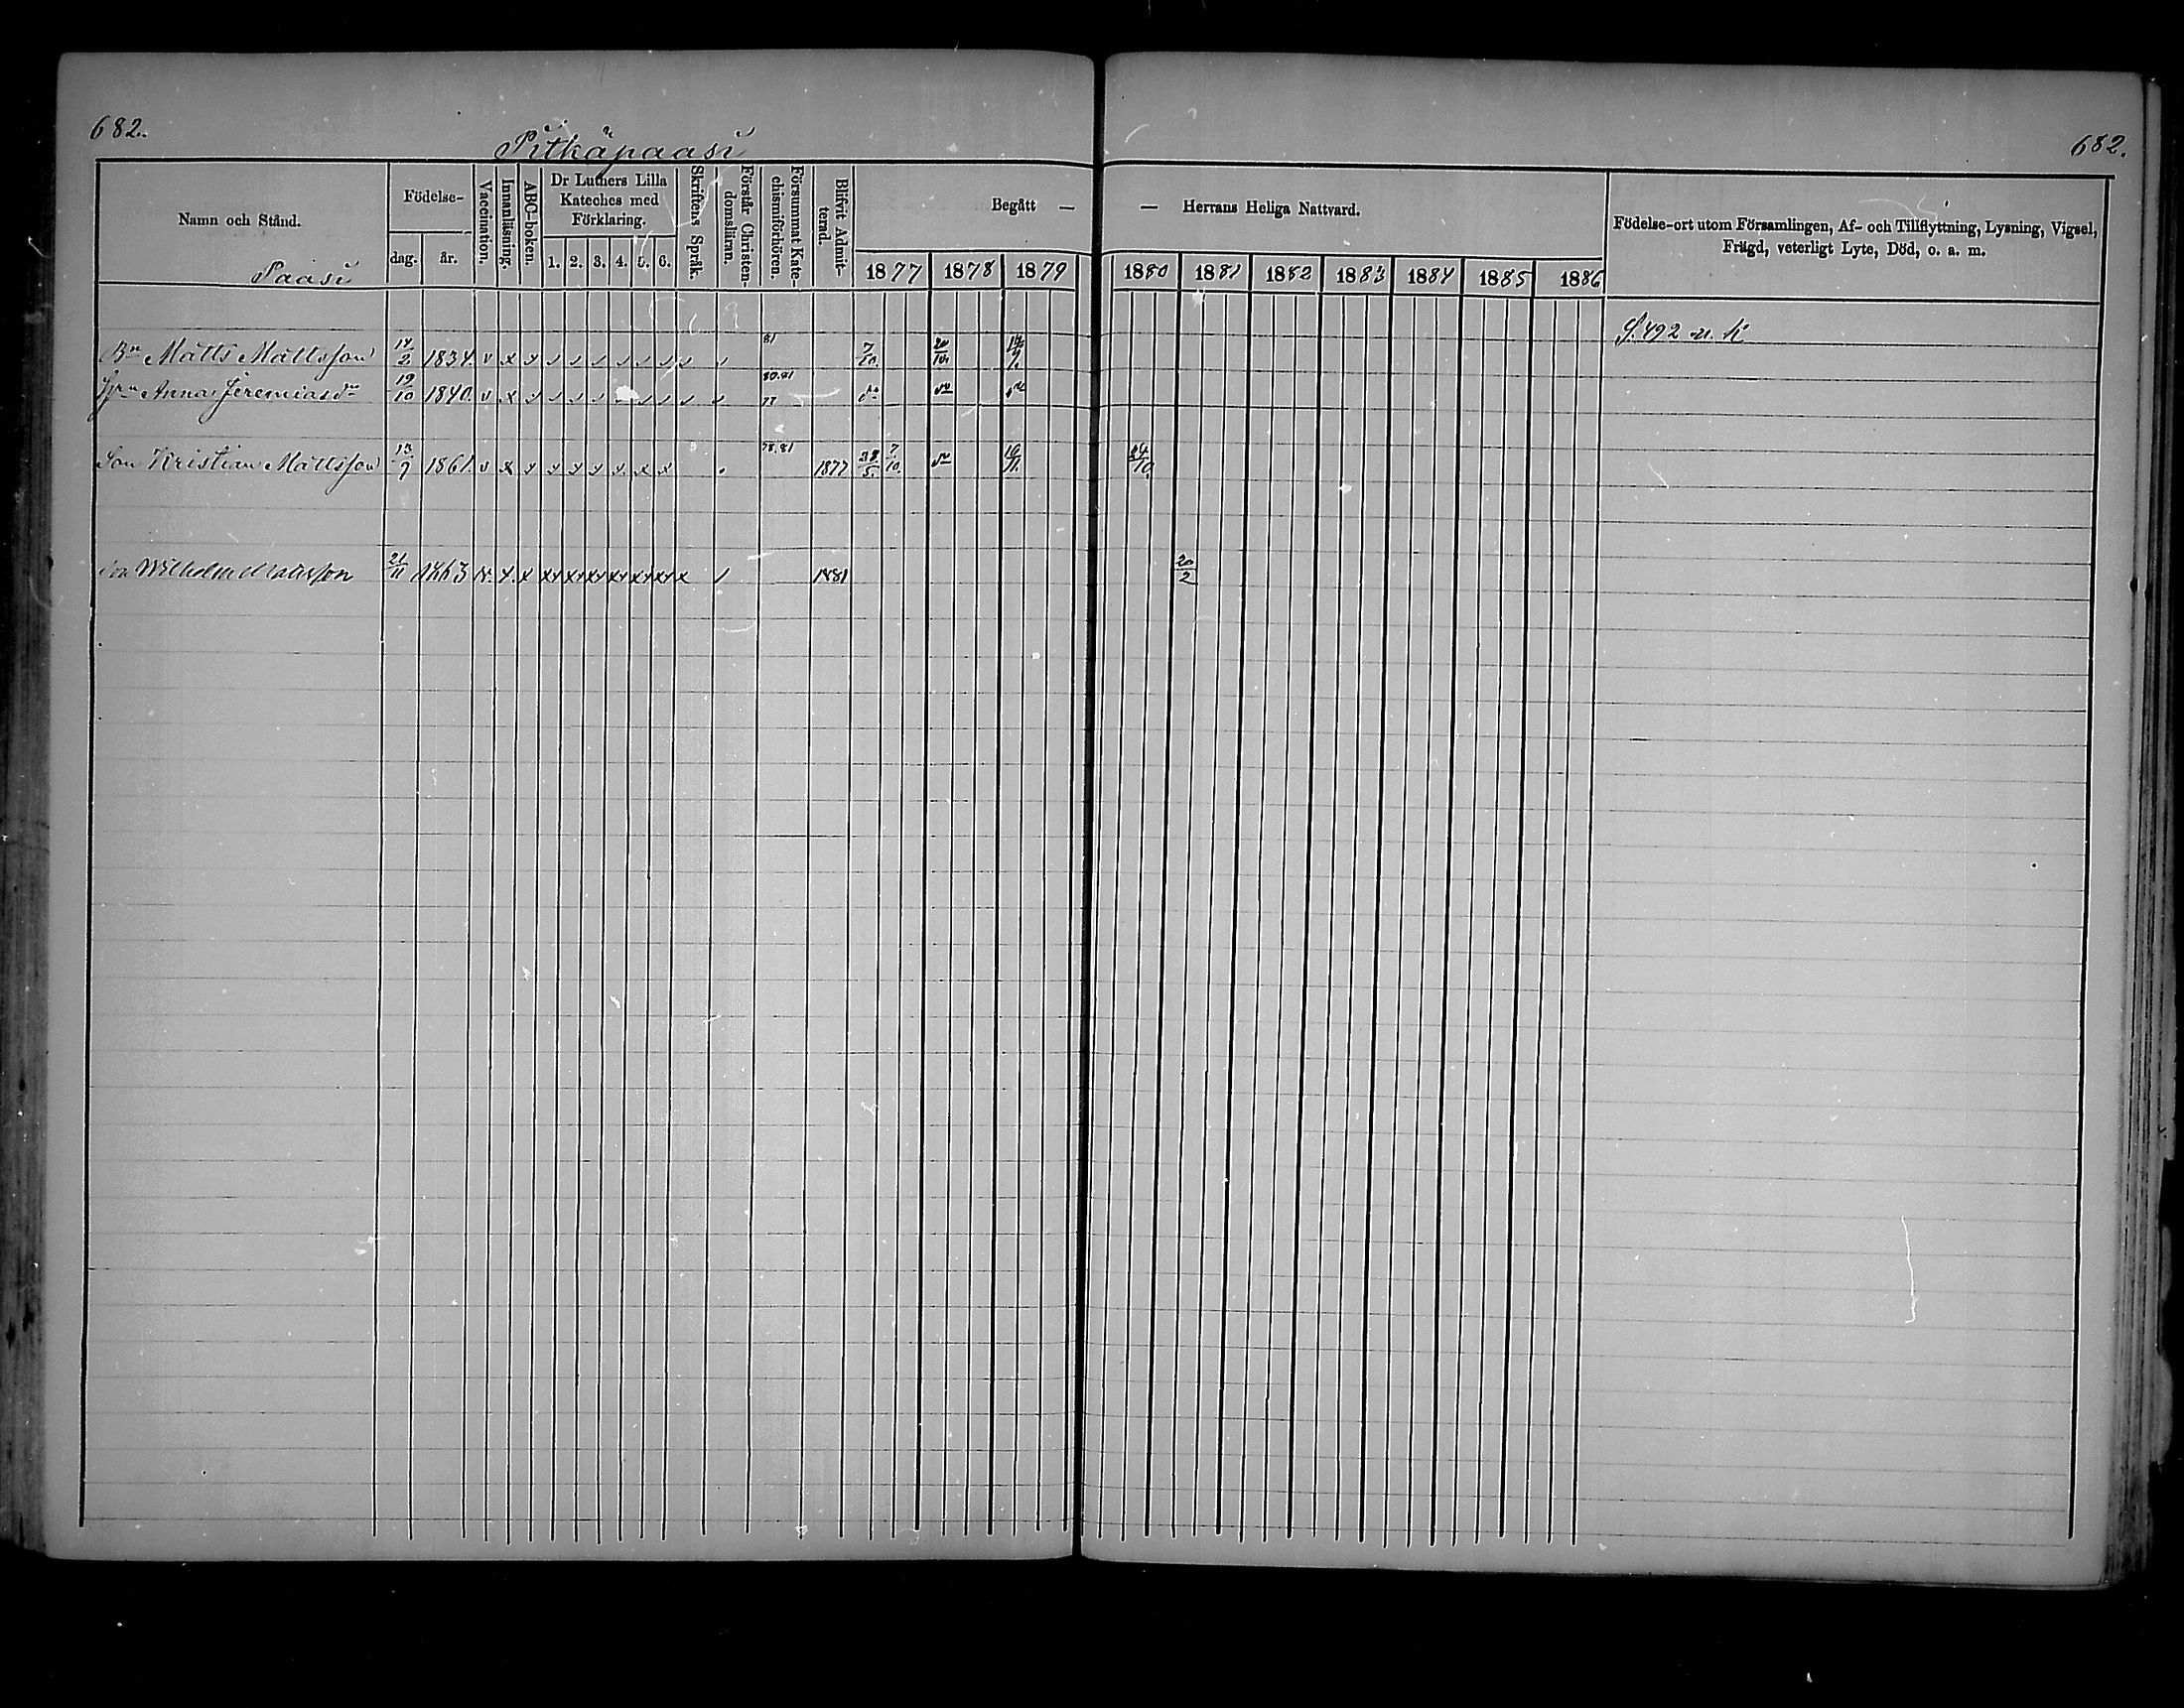 682.
682.
Pitkäpaasi
Namn och Stånd.
Födelse-
dag.
år.
Vaccination.
Innanläsning.
ABC-boken.
Dr Luthers Lilla
Kateches med
Förklaring.
1. 2. 3. 4. 5. 6.
Skriftens Språk.
Förstår Christen-
domsläran.
Försummat Kate-
chismiförhören.
Blifvit Admit-
terad.
Begått — — Herrans Heliga Nattvard.
1877 1878 1879 1880 1881 1882 1883 1884 1885 1886
Födelse-ort utom Församlingen, Af- och Tillflyttning, Lysning, Vigsel,
Frägd, veterligt Lyte, Död, o. a. m.
Paasi
S. 492 u. K
81
Bn Matts Mattsson 14/2 1834. v x x 7/10.
80.81
Hn Anna Jeremiasdr 19/10 1840. v x 77
78.81
Son Kristian Mattsson 1861. v x 1877 7/10. 24/10.
Son Wilhelm Mattsson 21/11 1863 1881 20/2